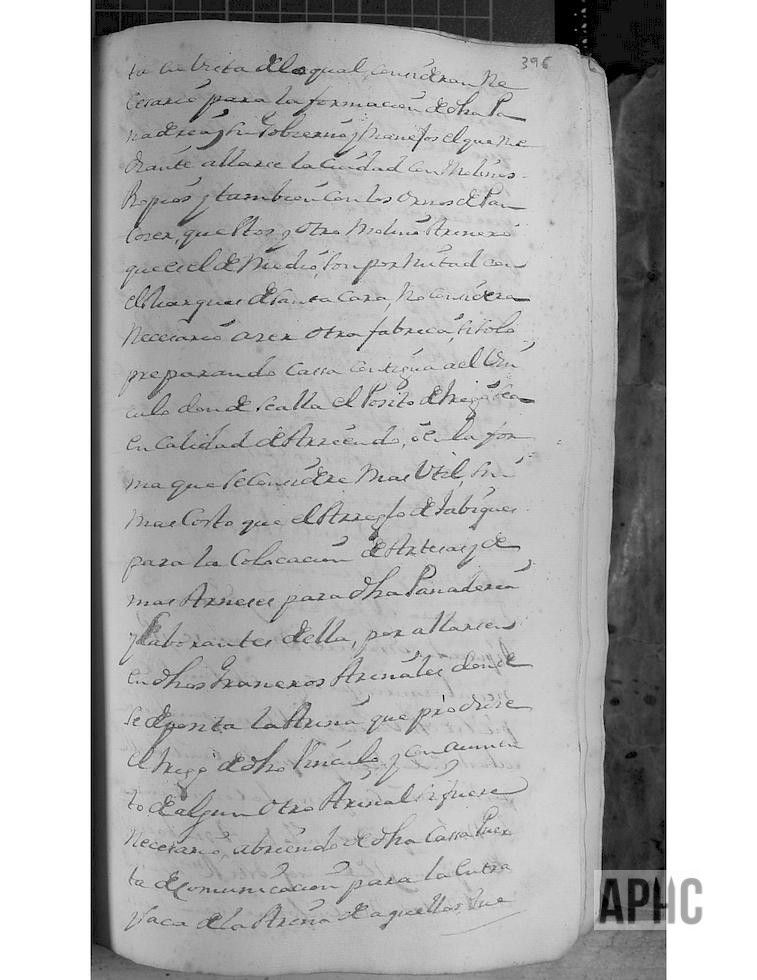 396
ta la Vista de la qual, consideran Ne
cesario para la formacion de dha Pa
naderia, su Gobierno, y Manejos el que me
diante allarse la Ciudad con Molinos
Propios y tambien con los Ornos de Pan
Cozer, que estos y otro Molino Arinero
que es el de Medio, son por mitad con
el Marques de Santa Cara, No considera
Necesario azer otra fabrica, si solo
preparando Cassa contigua a el Vin
culo donde se alla el Posito de trigo, sea
en Calidad de Arriendo, ô en la for
ma que se Considere Mas Util, sin
mas Costo que el Arreglo de tabiques
para la Colocacion de Artesas, y de
mas Arneses para dha Panaderia
y laborantes della, por allarse
en dhos Graneros Arinales donde
se deposita la Arina que produce
el trigo de dho Vinculo, y con aumen
to de algun otro Arinal si fuere
Necesario, abriendo de dha Cassa Puer
ta de comunicacion para la Entra
y saca de la Arina de aquellos, que
APHC